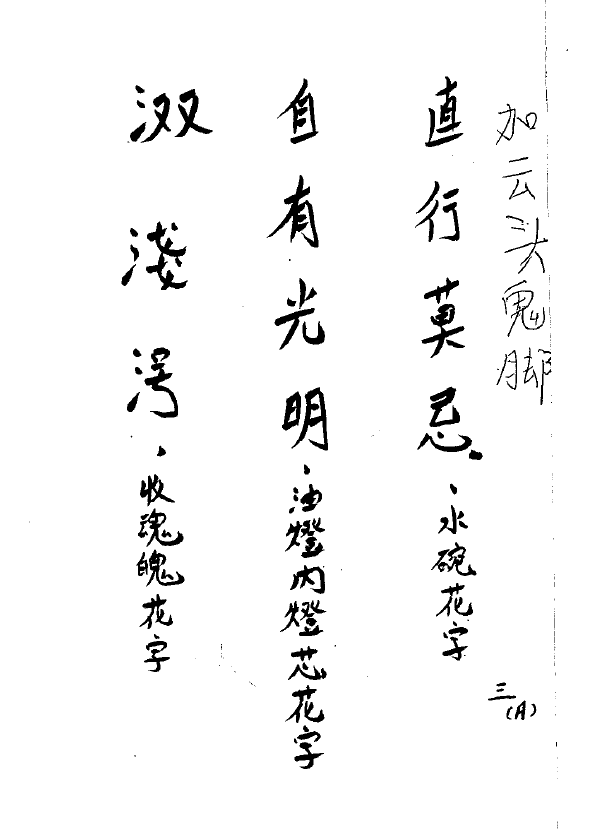 加云头鬼脚
直行莫忌、水碗花字
自有光明、油燈内燈芯花字
汊淺涄、收魂魄花字
三(A)